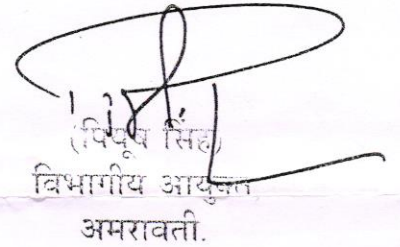 (पियूष सिंह)
विभागीय आयुक्त
अमरावती.